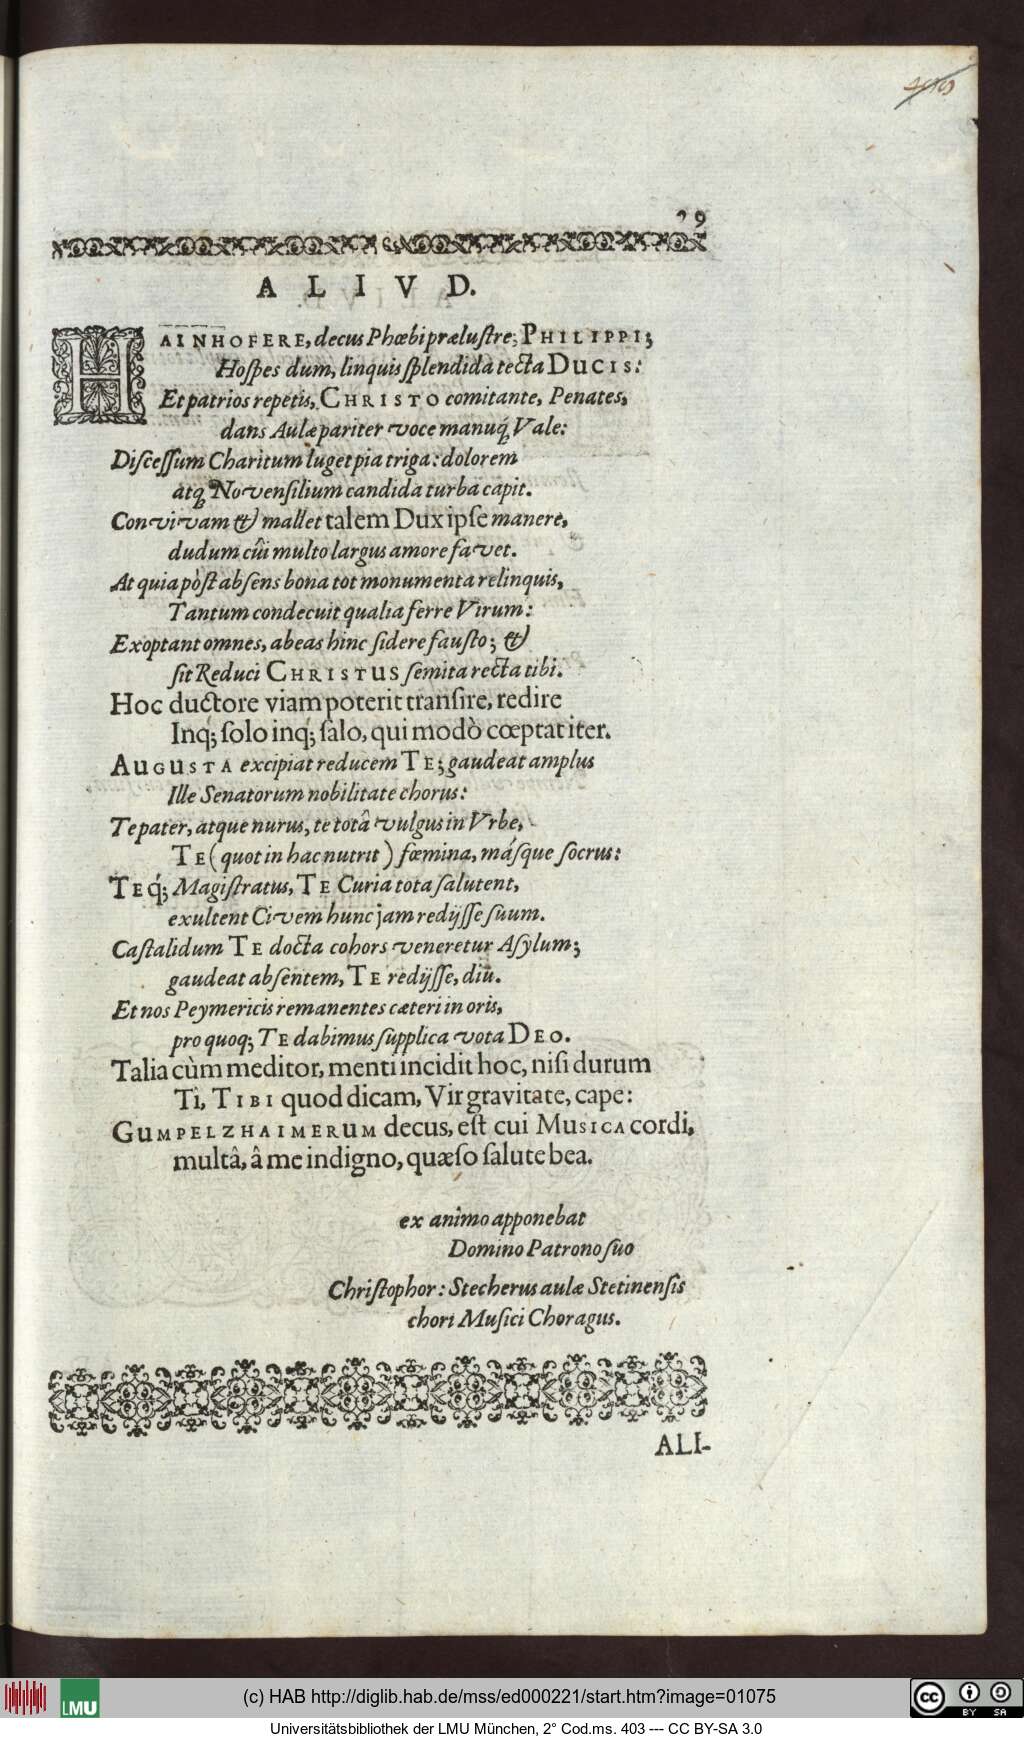 29
ALIVD.
HAINHOFERE, decus Phœbi prælustre, PHILIPPI;
Hospes dum, linquis splendida tecta DUCIS:
Et patrios repetis, CHRISTO comitante, Penates,
dans Aulæ pariter voce manuq́; Vale:
Discessum Charitum luget pia triga: dolorem
atq; Novensilium candida turba capit.
Convivam & mallet talem Dux ipse manere,
dudum cûi multo largus amore favet.
At quia pòst absens bona tot monumenta relinquis,
Tantum condecuit qualia ferre Virum:
Exoptant omnes, abeas hinc sidere fausto; &
sit Reduci CHRISTUS semita recta tibi.
Hoc ductore viam poterit transire, redire
Inq́; solo inq́; salo, qui modò cœptat iter.
AUGUSTA excipiat reducem TE; gaudeat amplus
Ille Senatorum nobilitate chorus:
Te pater, atque nurus, te totâ vulgus in Vrbe,
TE (quot in hac nutrit) fœmina, másque socrus:
TEq́; Magistratus, TE Curia tota salutent,
exultent Civem hunc jam redijsse suum.
Castalidum TE docta cohors veneretur Asylum;
gaudeat absentem, TE redijsse, diu.
Et nos Peymericis remanentes cæteri in oris,
pro quoq; TE dabimus supplica vota DEO.
Talia cùm meditor, menti incidit hoc, nisi durum
Tì, TIBI quod dicam, Vir gravitate, cape:
GUMPELZHAIMERUM decus, est cui MUSICA cordi,
multâ, â me indigno, quæso salute bea.
ex animo apponebat
Domino Patrono suo
Christophor: Stecherus aulæ Stetinensis
chori Musici Choragus.
ALI-
LMU
(c) HAB http://diglib.hab.de/mss/ed000221/start.htm?image=01075
cc BY SA
Universitätsbibliothek der LMU München, 2° Cod.ms. 403 --- CC BY-SA 3.0